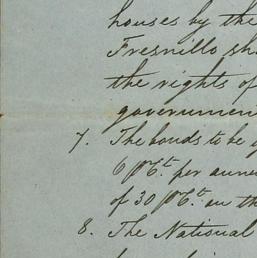 houses by the
Fresnillo sh
the rights of
governmen
7. The bonds to be g
6 p Ct. per annu
of 30 p Ct. on th
8. The National